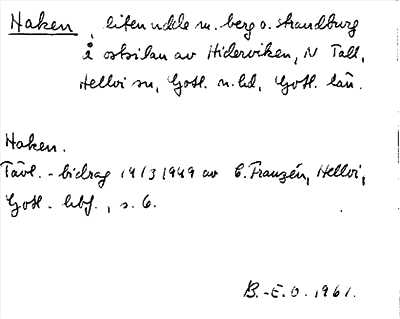 Haken, liten udde m. berg o. strandburg
å ostsidan av Hiderviken, N Tall,
Hellvi sn, Gotl. n. hd, Gotl. län.
Haken.
Tävl. - bidrag 14/3 1949 av E. Franzén, Hellvi,
Gotl. - hbf., s. 6.
B.-E. O. 1961.